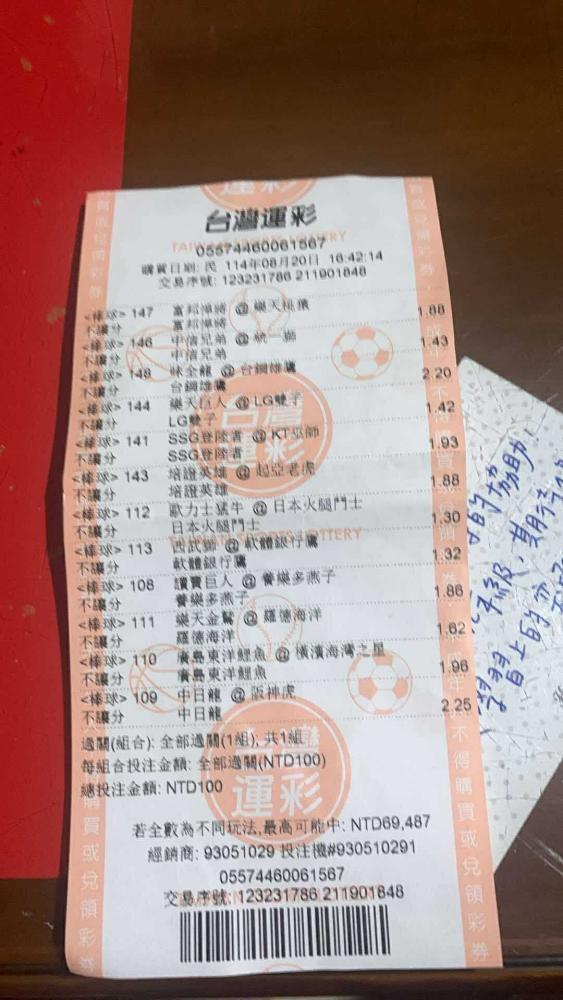 運彩
台灣運彩
TAIWAN SPORTS LOTTERY
05574460061567
購買日期: 民 114年08月20日 16:42:14
交易序號: 123231786 211901848
<棒球> 147 富邦悍將 @ 樂天桃猿
不讓分 富邦悍將 1.88
<棒球> 146 中信兄弟 @ 統一獅
不讓分 中信兄弟 1.43
<棒球> 148 味全龍 @ 台鋼雄鷹
不讓分 台鋼雄鷹 2.20
<棒球> 144 樂天巨人 @ LG雙子
不讓分 LG雙子 1.42
<棒球> 141 SSG登陸者 @ KT巫師
不讓分 SSG登陸者 1.93
<棒球> 143 培證英雄 @ 起亞老虎
不讓分 培證英雄 1.88
<棒球> 112 歐力士猛牛 @ 日本火腿鬥士
不讓分 日本火腿鬥士 1.30
<棒球> 113 西武獅 @ 軟體銀行鷹
不讓分 軟體銀行鷹 1.32
<棒球> 108 讀賣巨人 @ 養樂多燕子
不讓分 養樂多燕子 1.86
<棒球> 111 樂天金鷲 @ 羅德海洋
不讓分 羅德海洋 1.62
<棒球> 110 廣島東洋鯉魚 @ 橫濱海灣之星
不讓分 廣島東洋鯉魚 1.96
<棒球> 109 中日龍 @ 阪神虎
不讓分 中日龍 2.25
過關(組合): 全部過關(1組); 共1組
每組合投注金額: 全部過關(NTD100)
總投注金額: NTD100
若全數為不同玩法,最高可能中: NTD69,487
經銷商: 93051029 投注機#930510291
05574460061567
交易序號: 123231786 211901848
的協助!